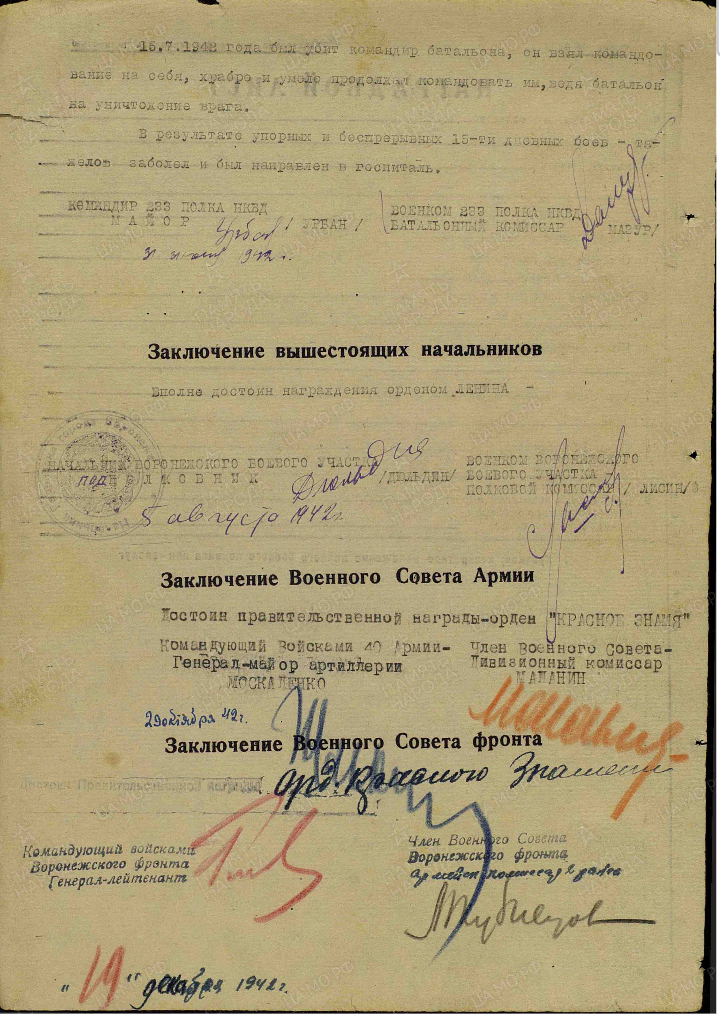 15.7.1942 года был убит командир батальона, он взял командо-
вание на себя, храбро и умело продолжал командовать им, ведя батальон
на уничтожение врага.
В результате упорных и беспрерывных 15-ти дневных боев - тя-
желов заболел и был направлен в госпиталь.
КОМАНДИР 233 ПОЛКА НКВД
МАЙОР Урбан / УРБАН /
31 июля 1942 г.
ВОЕНКОМ 233 ПОЛКА НКВД
БАТАЛЬОННЫЙ КОМИССАР МАЗУР/
Заключение вышестоящих начальников
Вполне достоин награждения орденом ЛЕНИНА -
НАЧАЛЬНИК ВОРОНЕЖСКОГО БОЕВОГО УЧАСТКА
подПОЛКОВНИК /ДЮЛЬДИН/
5 августа 1942 г.
ВОЕНКОМ ВОРОНЕЖСКОГО
БОЕВОГО УЧАСТКА
ПОЛКОВОЙ КОМИССАР / ЛИСИН/
Заключение Военного Совета Армии
Достоин правительственной награды-орден "КРАСНОЕ ЗНАМЯ"
Командующий Войсками 40 Армии-
Генерал-майор артиллерии
МОСКАЛЕНКО
Член Военного Совета-
Дивизионный комиссар
МАЛАНИН
Маланин
29 октября 42 г.
Заключение Военного Совета фронта
Достоин Правительственной награды орд. Красного Знамени
Командующий войсками
Воронежского фронта
Генерал-лейтенант
Член Военного Совета
Воронежского фронта
"19" декабря 1942 г.